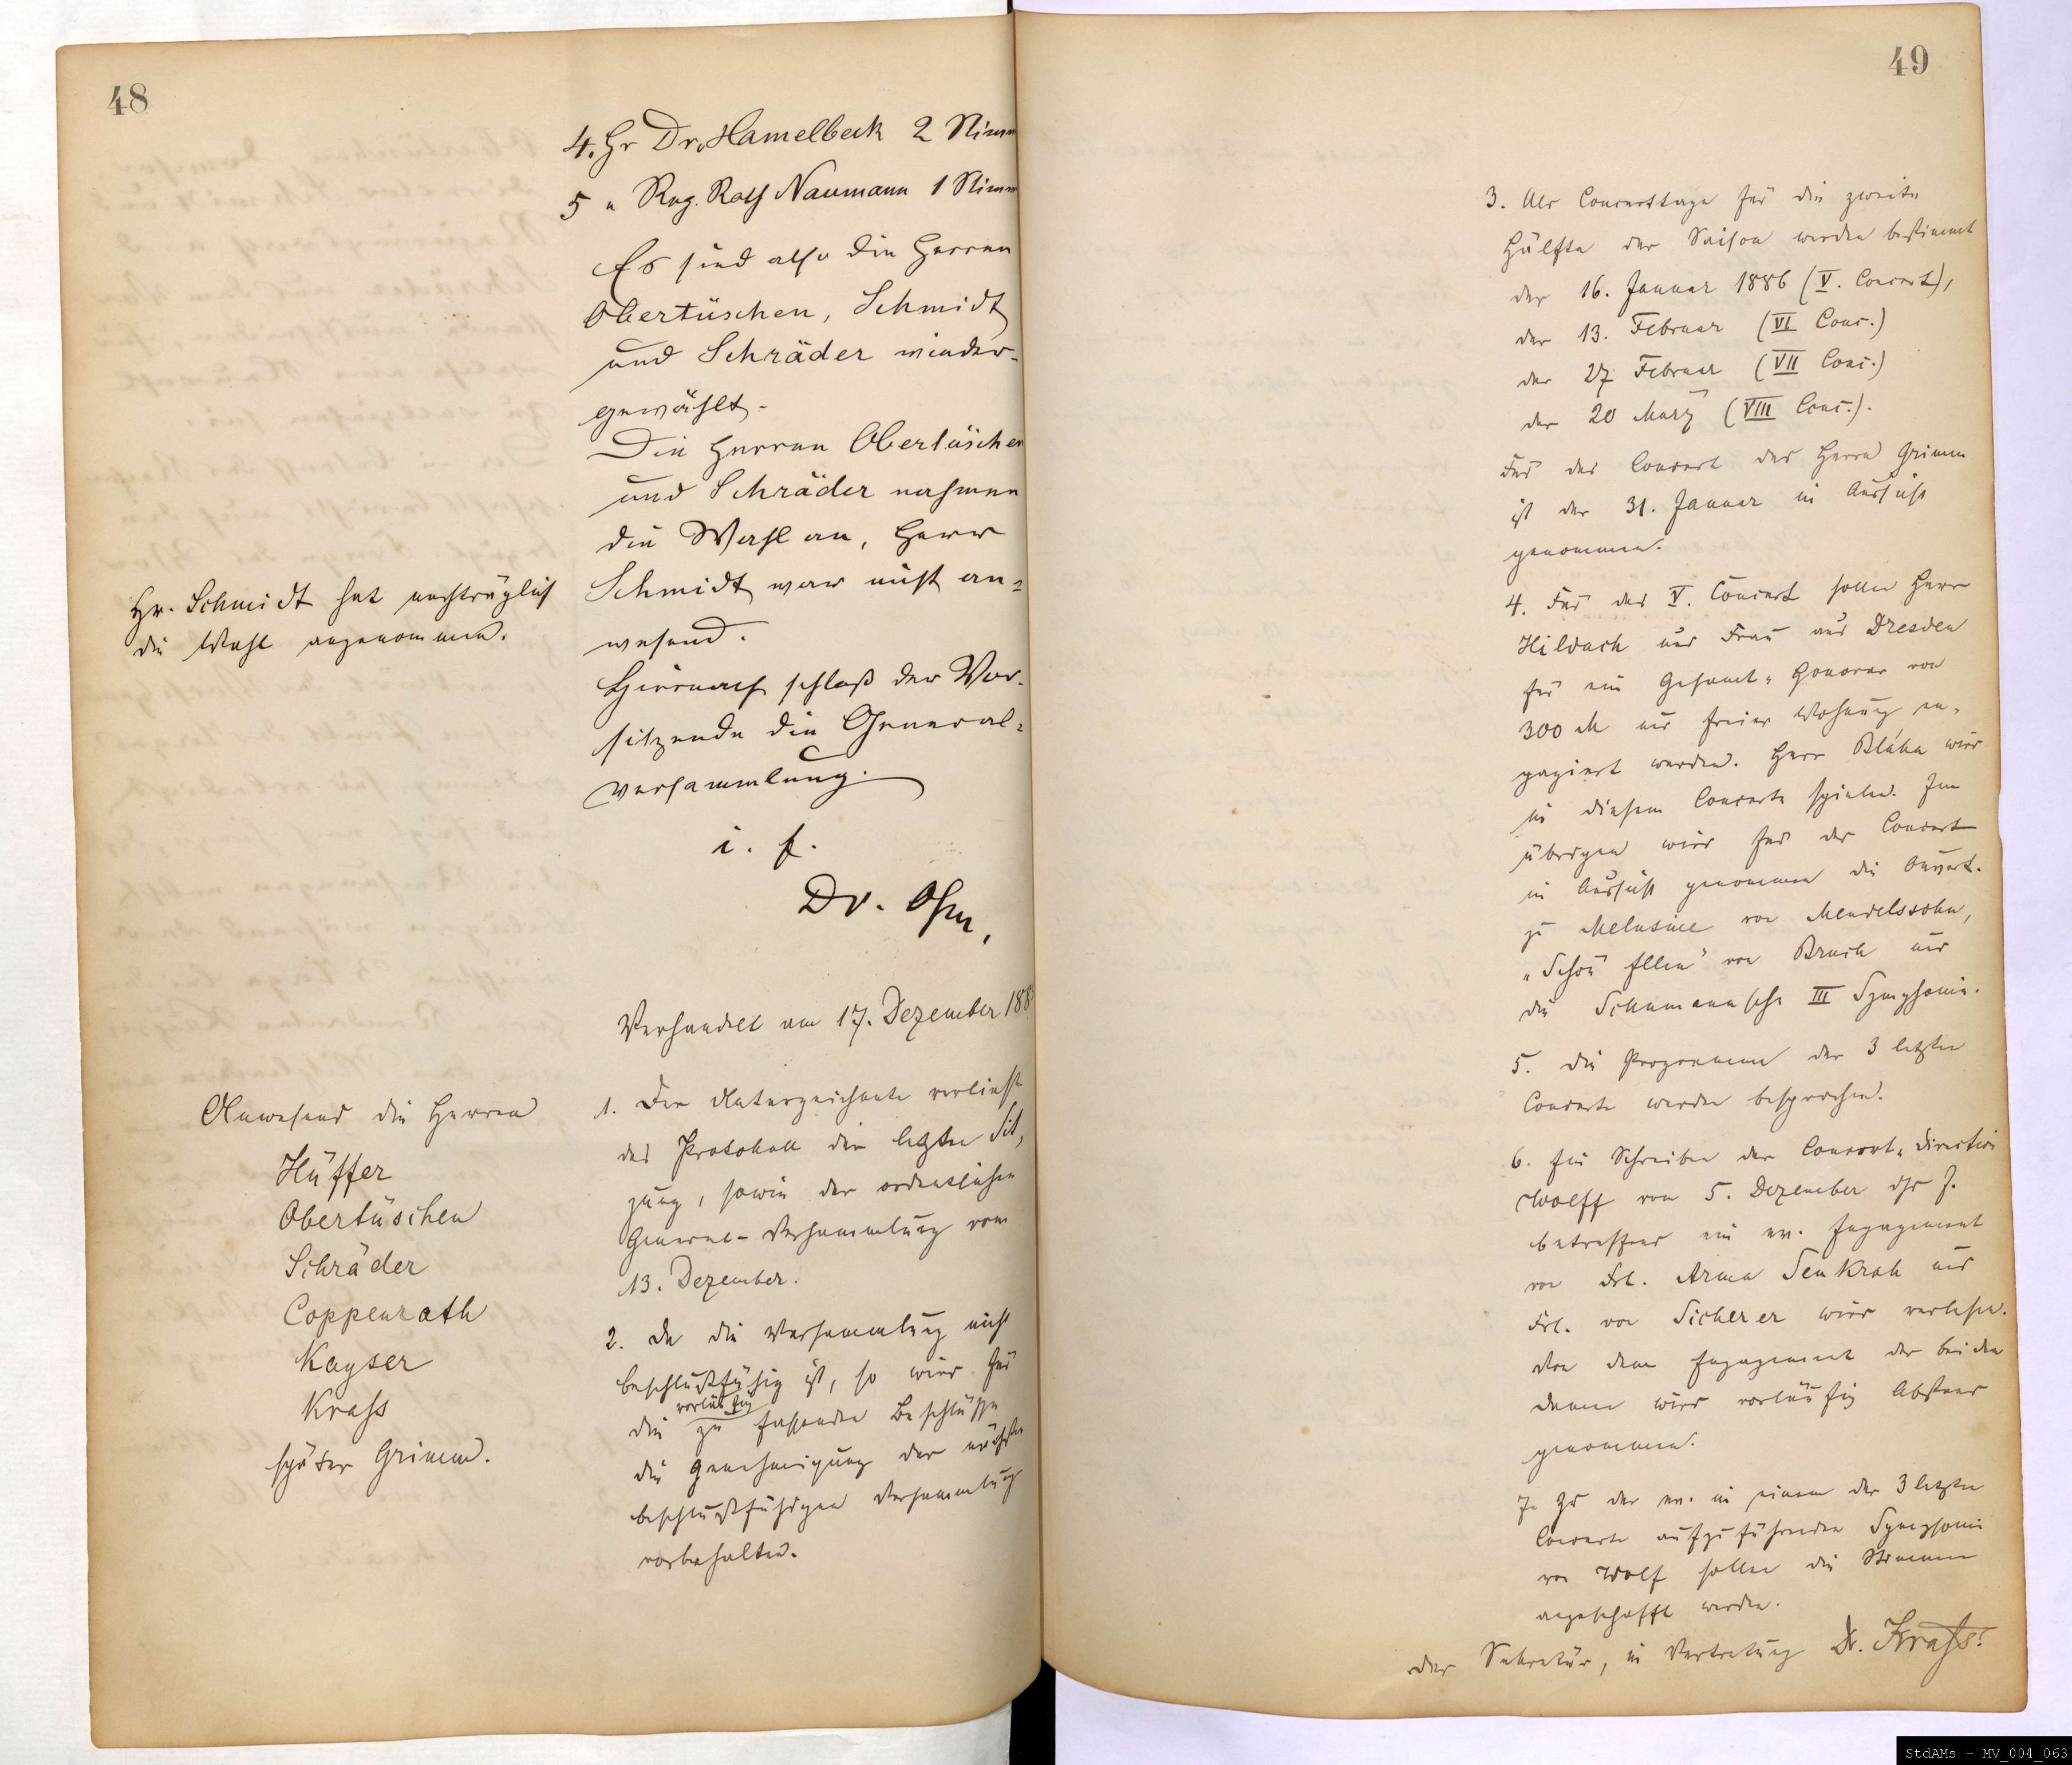 48
4. Hr Dr. Hamelbeck 2 Stimm
5 " Reg. Rath Naumann 1 Stimm
Es sind also die Herren
Obertüschen, Schmidt
und Schräder wieder-
gewählt.
Die Herren Obertüschen
und Schräder nahmen
die Wahl an, Herr
Schmidt war nicht an=
wesend.
Hr. Schmidt hat nachträglich
die Wahl angenommen.
Hiernach schloß der Vor-
sitzende die General=
versammlung.
i. f.
Dr. Ohm,
Verhandelt am 17. Dezember 188
Anwesend die Herren
Hüffer
Obertüschen
Schräder
Coppenrath
Kayser
Krass
später Grimm.
1. Der Unterzeichnete verliest
das Protokoll der letzten Sit,
zung, sowie der ordentlichen
General-Versammlung vom
13. Dezember.
2. Da die Versammlung nicht
beschlußfähig ist, so wird für
die zu fassenden Beschlüsse
vorläufig
die Genehmigung der nächsten
beschlußfähigen Versammlung
vorbehalten.
49
3. Als Concerttage für die zweite
Hälfte der Saison werden bestimmt
der 16. Januar 1886 (V. Concert),
der 13. Februar (VI Conc.)
der 27 Februar (VII Conc.)
der 20 März (VIII Conc.).
Für das Concert des Herrn Grimm
ist der 31. Januar in Aussicht
genommen.
4. Für das V. Concert sollen Herr
Hildach und Frau aus Dresden
für ein Gesamt-Honorar von
300 M und freier Wohnung en-
gagiert werden. Herr Bláha wird
in diesem Concerte spielen. Im
übrigen wird für das Concert
in Aussicht genommen die Ouvert.
zu Melusine von Mendelssohn,
"Schön Ellen" von Bruch und
die Schumannsche III Symphonie.
5. Die Programme der 3 letzten
Concerte werden besprochen.
6. Ein Schreiben der Concert-Direction
Wolff vom 5. Dezember ds J.
betreffend ein ev. Engagement
von Frl. Arma Senkrah und
Frl. von Sicherer wird verlesen.
Von dem Engagement der beiden
Damen wird vorläufig Abstand
genommen.
7. Zu der ev. in einem der 3 letzten
Concerte aufzuführenden Symphonie
von Wolf sollen die Stimmen
angeschafft werden.
Der Sekretär, in Vertretung Dr. Krass.
StdAMs - MV_004_063